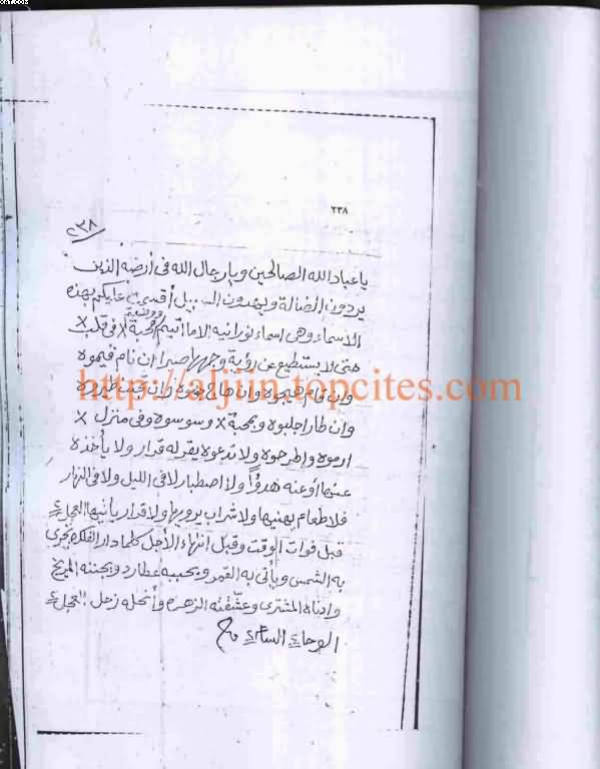 ٢٣٨
٢٣٨
يا عباد الله الصالحين ويا رجال الله فى أرضه الذين
يردون الضالة ويهدون السبيل أقسمت عليكم بهذه
الاسماء وهى اسماء نورانيه الا ما اتيتم ووضعتم محبة X فى قلب X
حتى لا يستطيع عن رؤية وجهها صبرا ان نام فيموه
وان قام هيجوه وان
وان طار اجلبوه وبمحبة X وسوسوه وفى منزل X
ارموه واطرحوه ولا تدعوه يقر له قرار ولا يأخذه
عنها أو عنه هدوءا ولا اصطبار لا فى الليل ولا فى النهار
فلا طعام يهنيها ولا شراب يرويها ولا قرار يأتيها العجل
قبل فوات الوقت وقبل انتهاء الأجل كلما دار الفلك تجرى
به الشمس ويأتى به القمر ويحببه عطارد ويجننه المريخ
وادناه المشترى وعشقته الزهره وأنحله زحل العجل
الوحا الساعه
http://aljiin.topcites.com